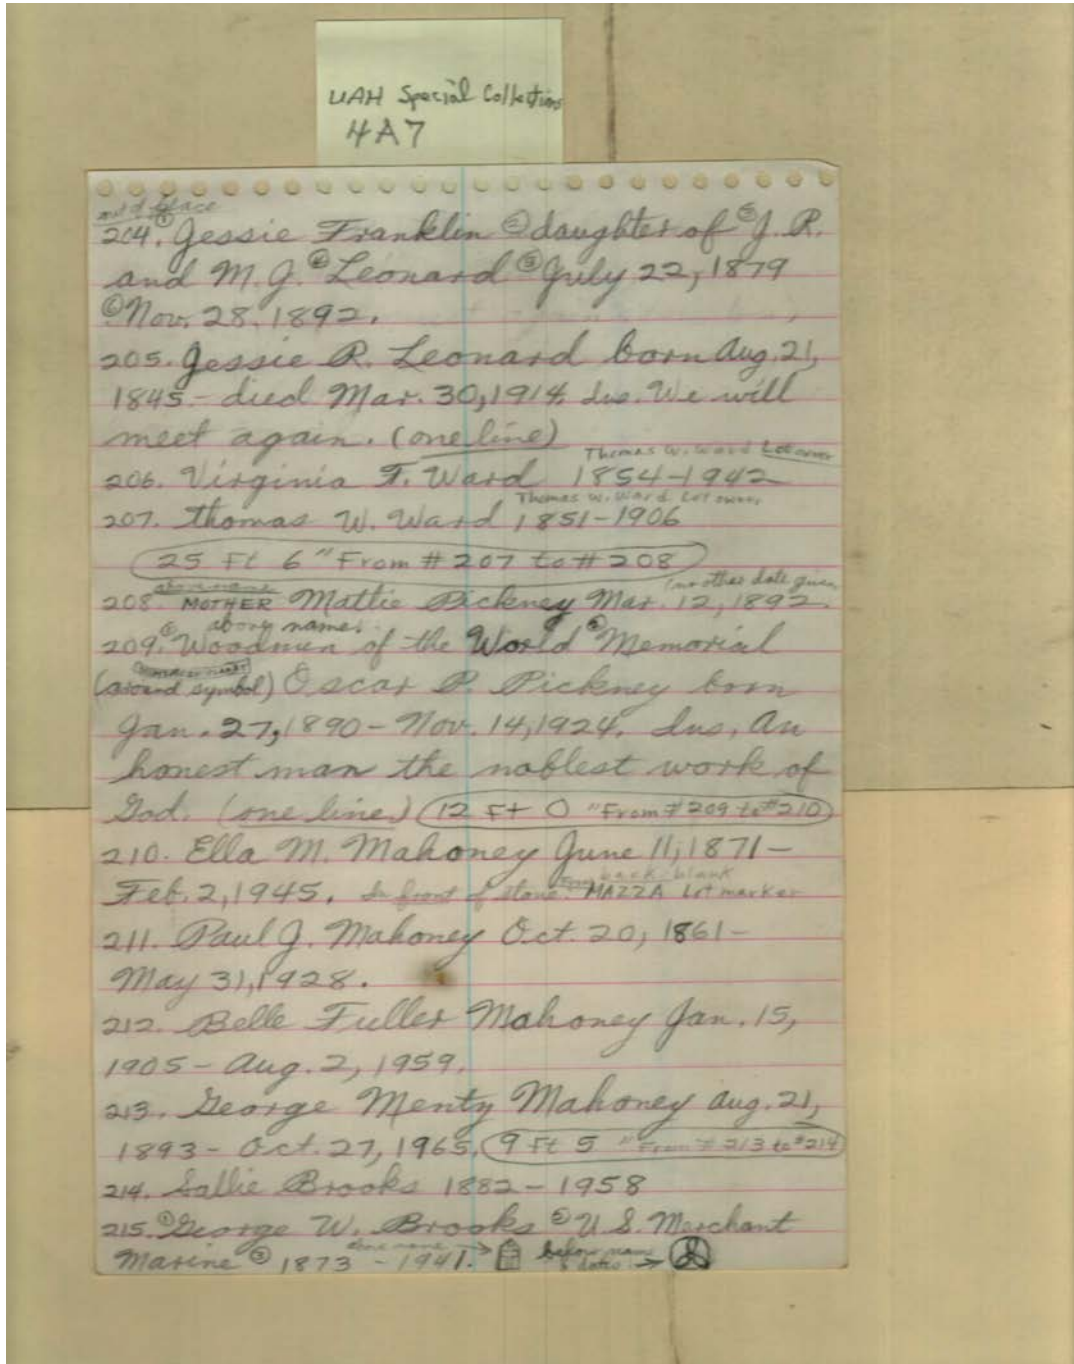 UAH Special Collections
4A7
204. ① Jessie Franklin ② daughter of ③ J. R.
and M. J. ④ Leonard ⑤ July 22, 1879
⑥ Nov. 28, 1892.
205. Jessie R. Leonard born Aug. 21,
1845 - died Mar. 30, 1914. Ins. We will
meet again. (one line)
Thomas W. Ward Lot owner
206. Virginia F. Ward 1854-1942
Thomas W. Ward Lot owner
207. Thomas W. Ward 1851-1906
25 Ft 6 " From # 207 to # 208
above name (no other date given
208. MOTHER Mattie Pickney Mar. 12, 1892.
above name.
209. ① Woodmen of the World ② Memorial
(around symbol) Oscar P. Pickney born
Jan. 27, 1890 - Nov. 14, 1924. Ins. An
honest man the noblest work of
God. (one line.) 12 Ft 0 " From # 209 to # 210
210. Ella M. Mahoney June 11, 1871 -
back-blank
Feb. 2, 1945. In front of stone. MAZZA Lot marker
211. Paul J. Mahoney Oct. 20, 1861 -
May 31, 1928.
212. Belle Fuller Mahoney Jan. 15,
1905 - Aug. 2, 1959.
213. George Menty Mahoney Aug. 21,
1893 - Oct. 27, 1965. 9 Ft 5 " From # 213 to # 214
214. Sallie Brooks 1882 - 1958
215. ① George W. Brooks ② U S. Merchant
Marine ③ 1873 - 1941. below name
& dates